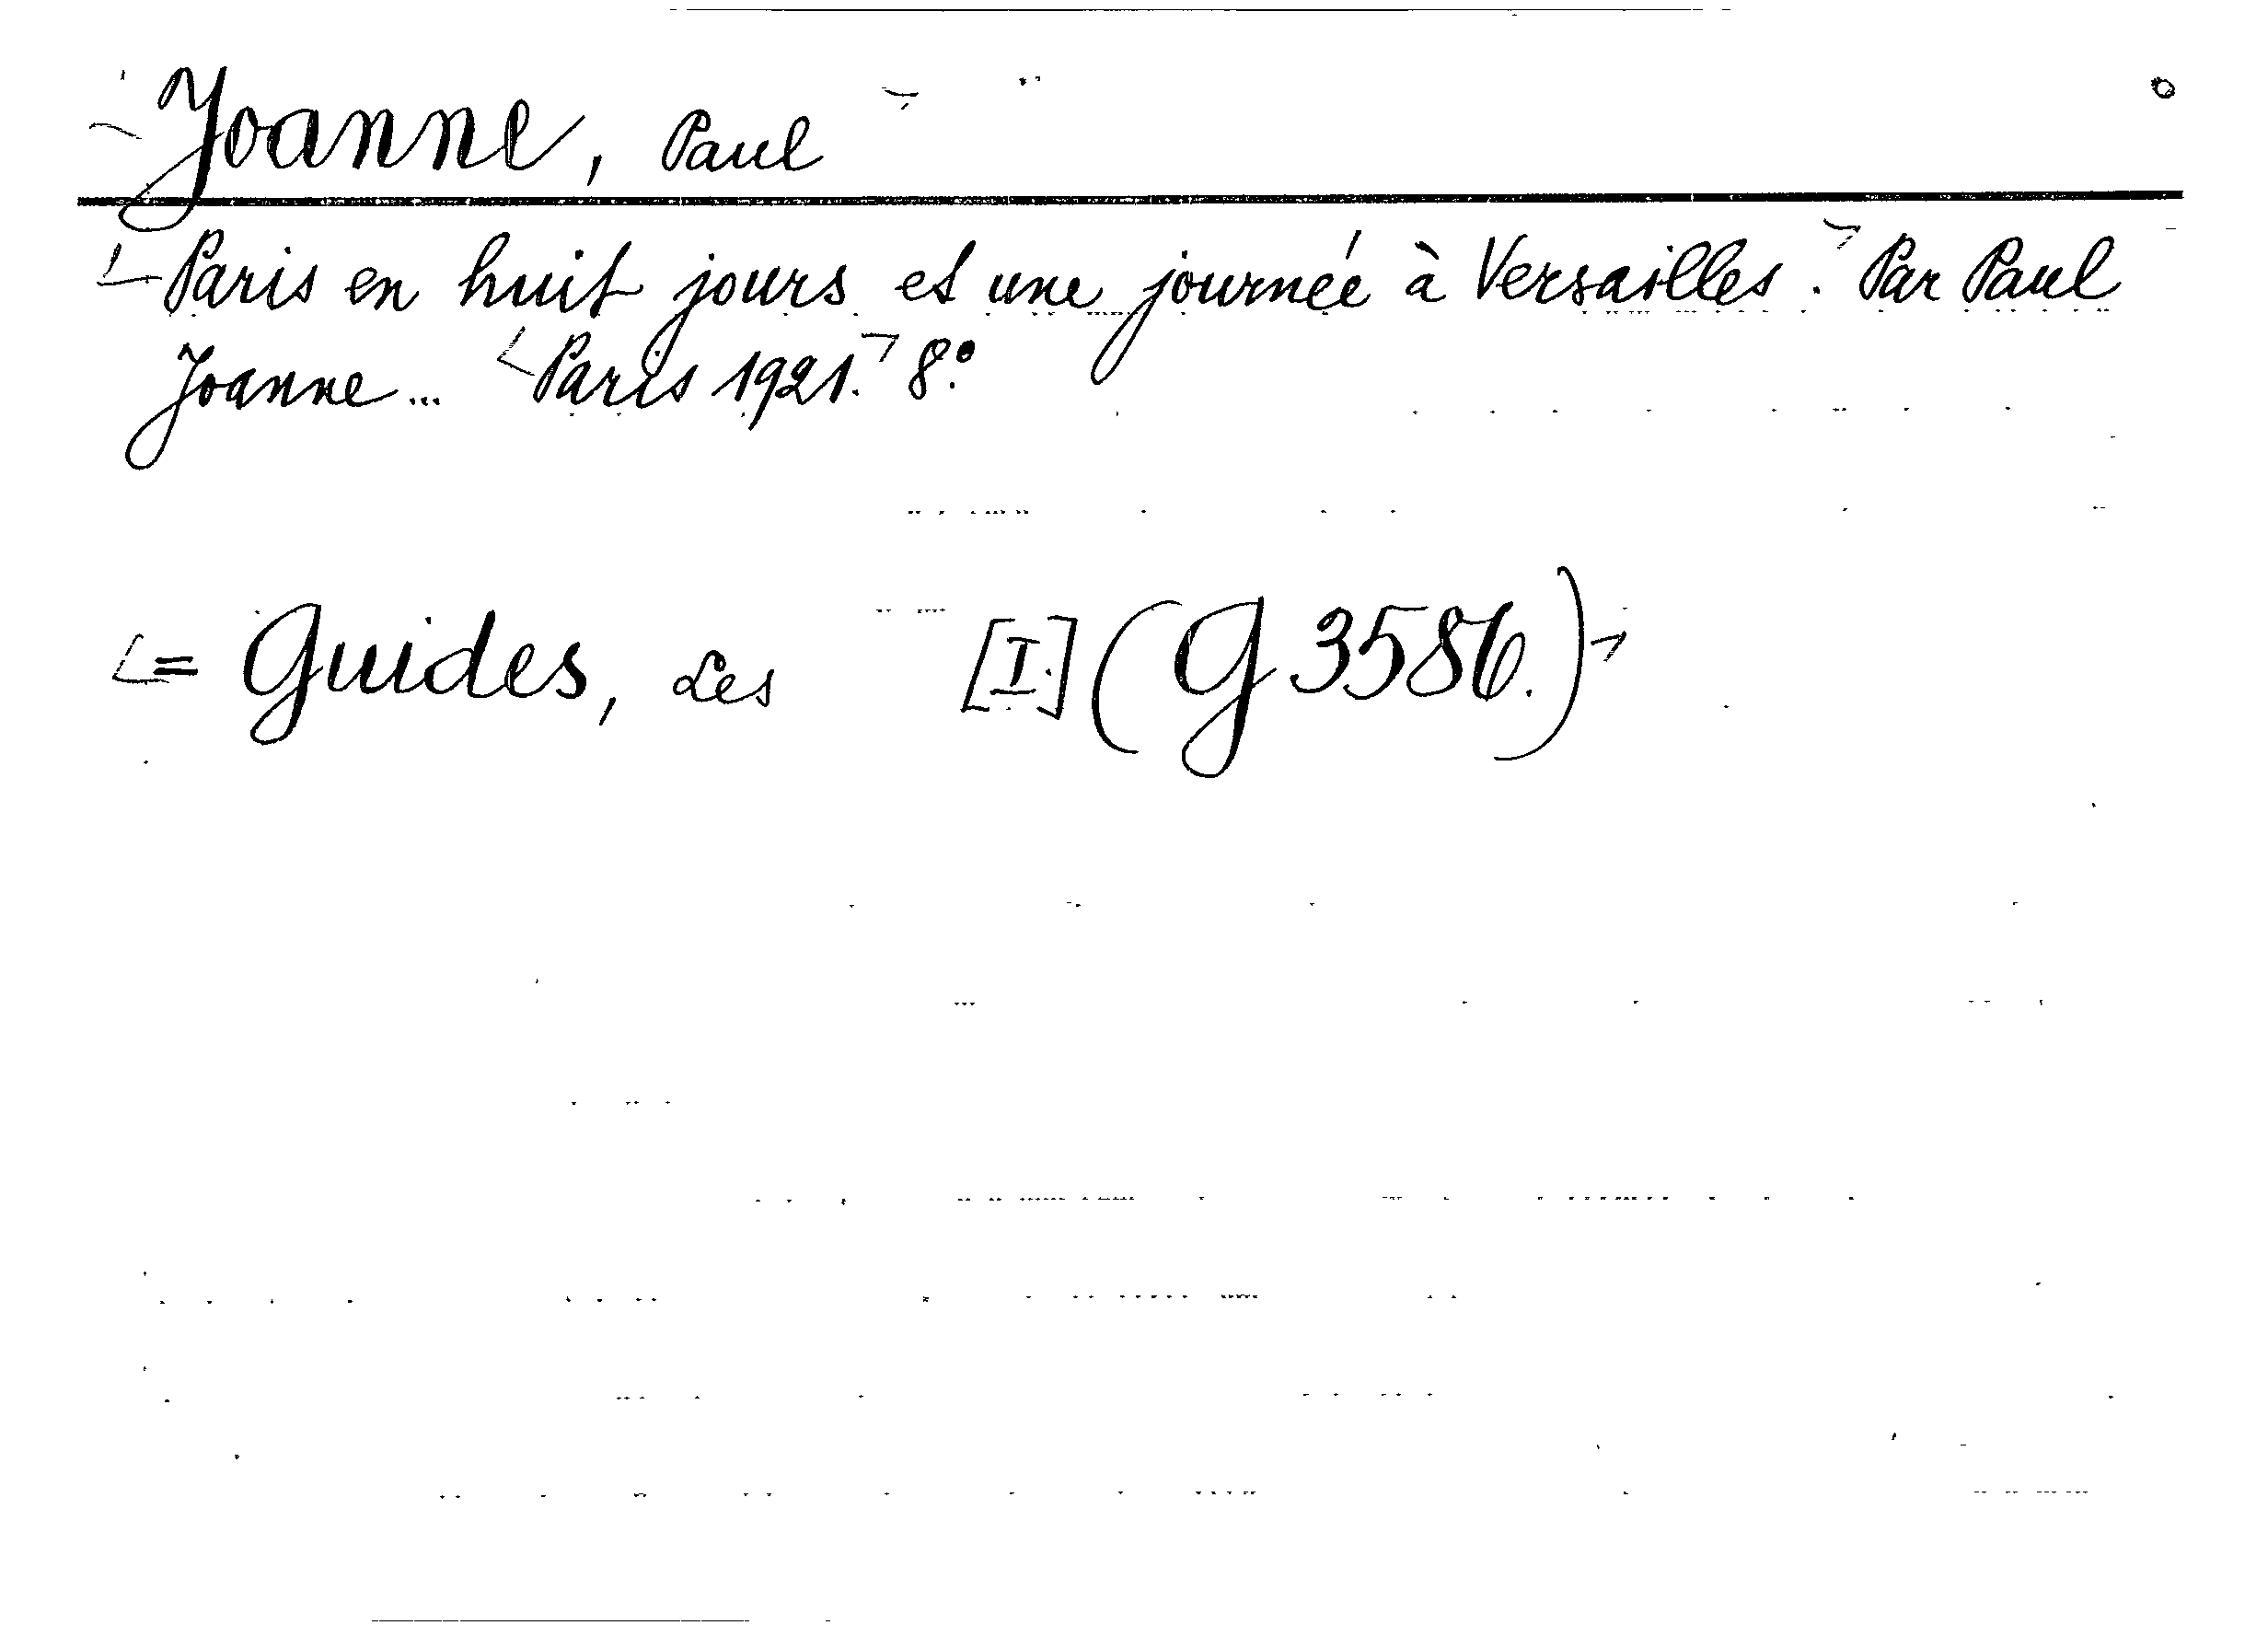 Joanne, Paul
Paris en huit jours et une journée à Versailles. Par Paul
Joanne... Paris 1921. 8°.
= Guides, Les [I.] (G 3586.)